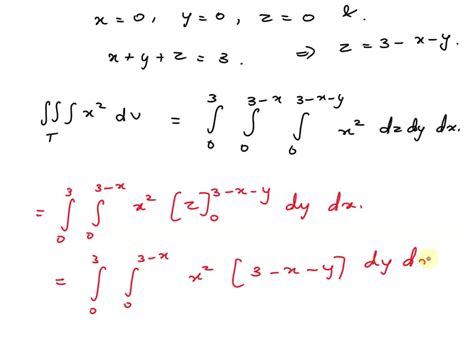 x = 0, y = 0, z = 0 &.
x + y + z = 3. ⇒ z = 3 - x - y.
∭_T x² dv = ∫_0^3 ∫_0^{3-x} ∫_0^{3-x-y} x² dz dy dx.
= ∫_0^3 ∫_0^{3-x} x² [z]_0^{3-x-y} dy dx.
= ∫_0^3 ∫_0^{3-x} x² [3 - x - y] dy dx